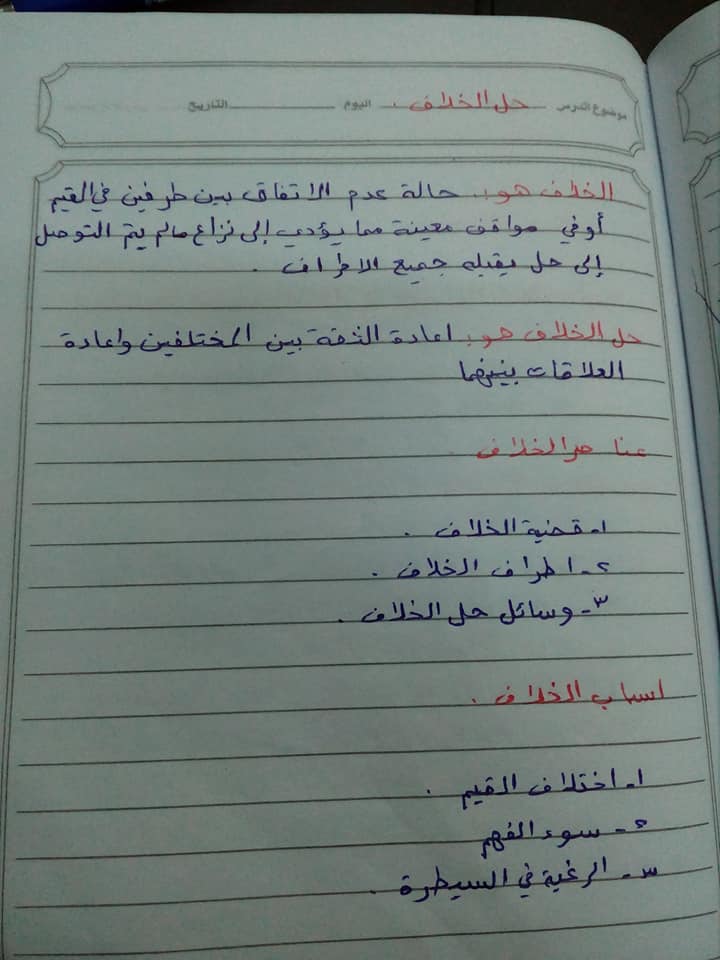 موضوع الدرس حل الخلاف . اليوم التاريخ
الخلاف هو: حالة عدم الاتفاق بين طرفين في القيم
أو في مواقف معينة مما يؤدي إلى نزاع مالم يتم التوصل
إلى حل يقبله جميع الاطراف .
حل الخلاف هو: اعادة الثقة بين المختلفين واعادة
العلاقات بينهما
عناصر الخلاف
١- قضية الخلاف .
٢- اطراف الخلاف .
٣- وسائل حل الخلاف .
اسباب الخلاف .
١- اختلاف القيم .
٢- سوء الفهم
٣- الرغبة في السيطرة .